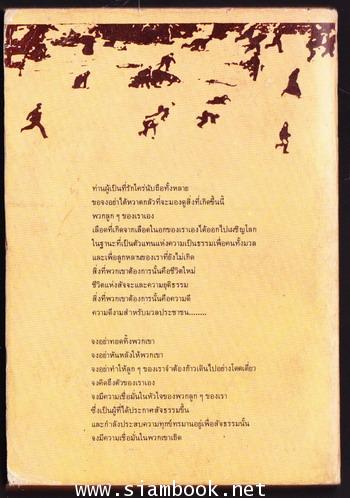 www.siambook.net
ท่านผู้เป็นที่รักใคร่นับถือทั้งหลาย
ขอจงอย่าได้หวาดกลัวที่จะมองดูสิ่งที่เกิดขึ้นนี้
พวกลูก ๆ ของเราเอง
เลือดที่เกิดจากเลือดในอกของเราเองได้ออกไปเผชิญโลก
ในฐานะที่เป็นตัวแทนแห่งความเป็นธรรมเพื่อคนทั้งมวล
และเพื่อลูกหลานของเราที่ยังไม่เกิด
สิ่งที่พวกเขาต้องการนั้นคือชีวิตใหม่
ชีวิตแห่งสัจจะและความยุติธรรม
สิ่งที่พวกเขาต้องการนั้นคือความดี
ความดีงามสำหรับมวลประชาชน........
จงอย่าทอดทิ้งพวกเขา
จงอย่าหันหลังให้พวกเขา
จงอย่าทำให้ลูก ๆ ของเราจำต้องก้าวเดินไปอย่างโดดเดี่ยว
จงคิดถึงตัวของเราเอง
จงมีความเชื่อมั่นในหัวใจของพวกลูก ๆ ของเรา
ซึ่งเป็นผู้ที่ได้ประกาศสัจธรรมขึ้น
และกำลังประสบความทุกข์ทรมานอยู่เพื่อสัจธรรมนั้น
จงมีความเชื่อมั่นในพวกเขาเถิด
www.siambook.net